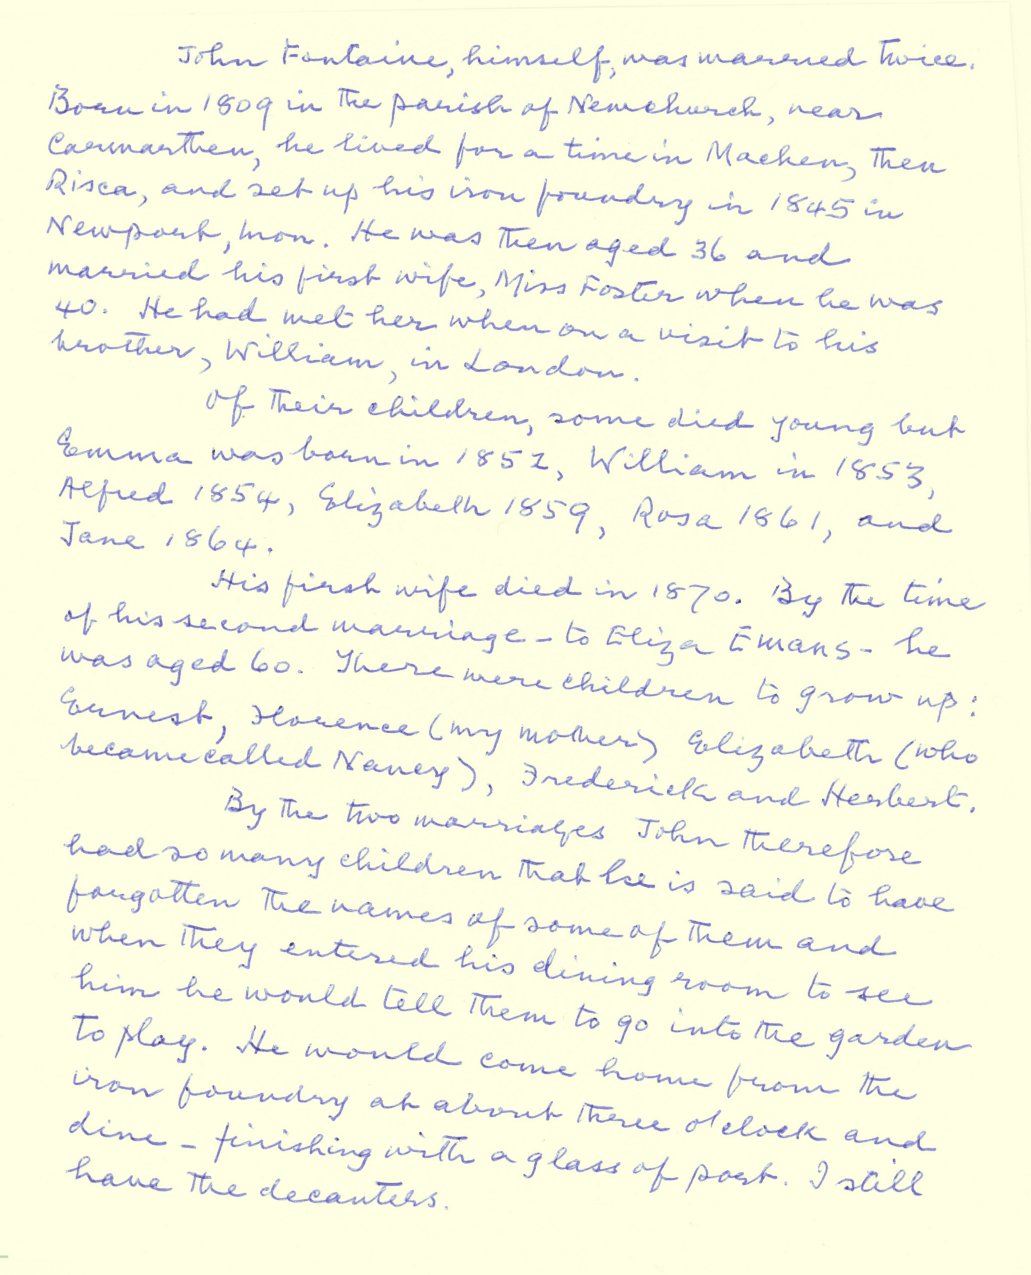 John Fontaine, himself, was married twice.
Born in 1809 in the parish of Newchurch, near
Carmarthen, he lived for a time in Machen, then
Risca, and set up his iron foundry in 1845 in
Newport, Mon. He was then aged 36 and
married his first wife, Miss Foster when he was
40. He had met her when on a visit to his
brother, William, in London.
Of their children, some died young but
Emma was born in 1852, William in 1853,
Alfred 1854, Elizabeth 1859, Rosa 1861, and
Jane 1864.
His first wife died in 1870. By the time
of his second marriage - to Eliza Emans - he
was aged 60. There were children to grow up:
Ernest, Florence (my mother) Elizabeth (who
became called Nancy), Frederick and Herbert.
By the two marriages John therefore
had so many children that he is said to have
forgotten the names of some of them and
when they entered his dining room to see
him he would tell them to go into the garden
to play. He would come home from the
iron foundry at about three o'clock and
dine - finishing with a glass of port. I still
have the decanters.